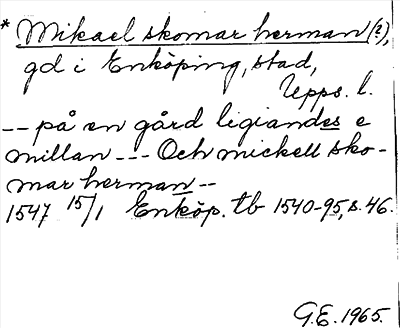 * Mikael skomar herman (?),
gd i Enköping, stad,
Upps. l.
-- på en gård ligiandes e
millan --- Och mickell sko-
mar herman --
1547 15/1 Enköp. tb 1540-95, s. 46.
G.E. 1965.